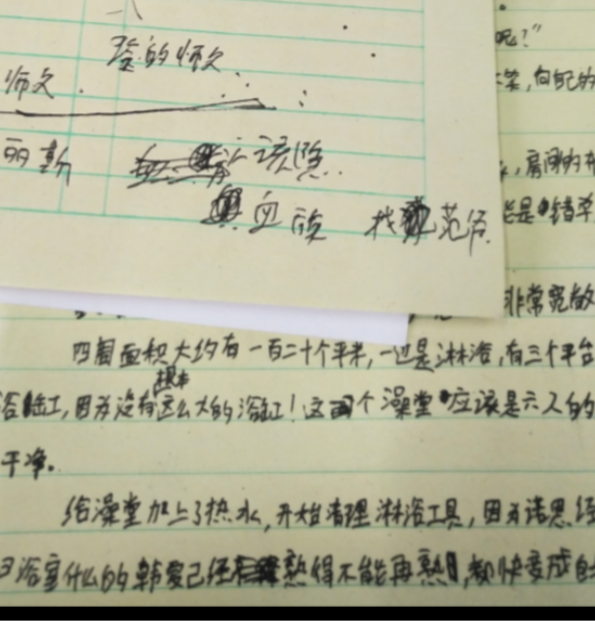 的师父
师父
丽斯 该隐
血族 找 范海
呢？"
笑，向自己的
，房间的布
是错
非常宽敞
四周面积大约有一百二十个平米，一边是淋浴，有三个平台
浴缸，因为没有根本这么大的浴缸！这个澡堂应该是六人的
干净。
给澡堂加上了热水，开始清理淋浴工具，因为诺思
浴室什么的韩爱已经熟得不能再熟，都快变成自